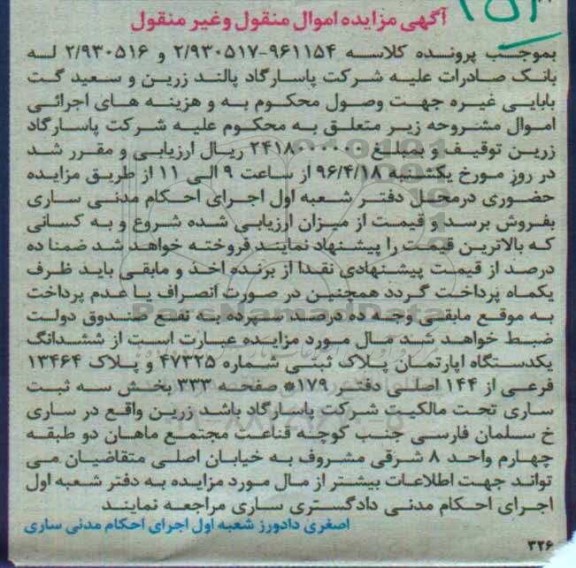 ۲۵۲
آگهی مزایده اموال منقول وغیر منقول
بموجب پرونده کلاسه ۹۶۱۱۵۴-۲/۹۳۰۵۱۷ و ۲/۹۳۰۵۱۶ له
بانک صادرات علیه شرکت پاسارگاد پالند زرین و سعید گت
بابایی غیره جهت وصول محکوم به و هزینه های اجرائی
اموال مشروحه زیر متعلق به محکوم علیه شرکت پاسارگاد
زرین توقیف و بمبلغ ۲۴۱۸۰۰۰۰۰۰ ریال ارزیابی و مقرر شد
در روز مورخ یکشنبه ۹۶/۴/۱۸ از ساعت ۹ الی ۱۱ از طریق مزایده
حضوری درمحل دفتر شعبه اول اجرای احکام مدنی ساری
بفروش برسد و قیمت از میزان ارزیابی شده شروع و به کسانی
که بالاترین قیمت را پیشنهاد نمایند فروخته خواهد شد ضمنا ده
درصد از قیمت پیشنهادی نقدا از برنده اخذ و مابقی باید ظرف
یکماه پرداخت گردد همچنین در صورت انصراف یا عدم پرداخت
به موقع مابقی وجه ده درصد سپرده به نفع صندوق دولت
ضبط خواهد شد مال مورد مزایده عبارت است از ششدانگ
یکدستگاه اپارتمان پلاک ثبتی شماره ۴۷۳۲۵ و پلاک ۱۳۴۶۴
فرعی از ۱۴۴ اصلی دفتر ۱۷۹* صفحه ۳۳۳ بخش سه ثبت
ساری تحت مالکیت شرکت پاسارگاد باشد زرین واقع در ساری
خ سلمان فارسی جنب کوچه قناعت مجتمع ماهان دو طبقه
چهارم واحد ۸ شرقی مشروف به خیابان اصلی متقاضیان می
تواند جهت اطلاعات بیشتر از مال مورد مزایده به دفتر شعبه اول
اجرای احکام مدنی دادگستری ساری مراجعه نمایند
اصغری دادورز شعبه اول اجرای احکام مدنی ساری
۳۲۶
ParsNamadData